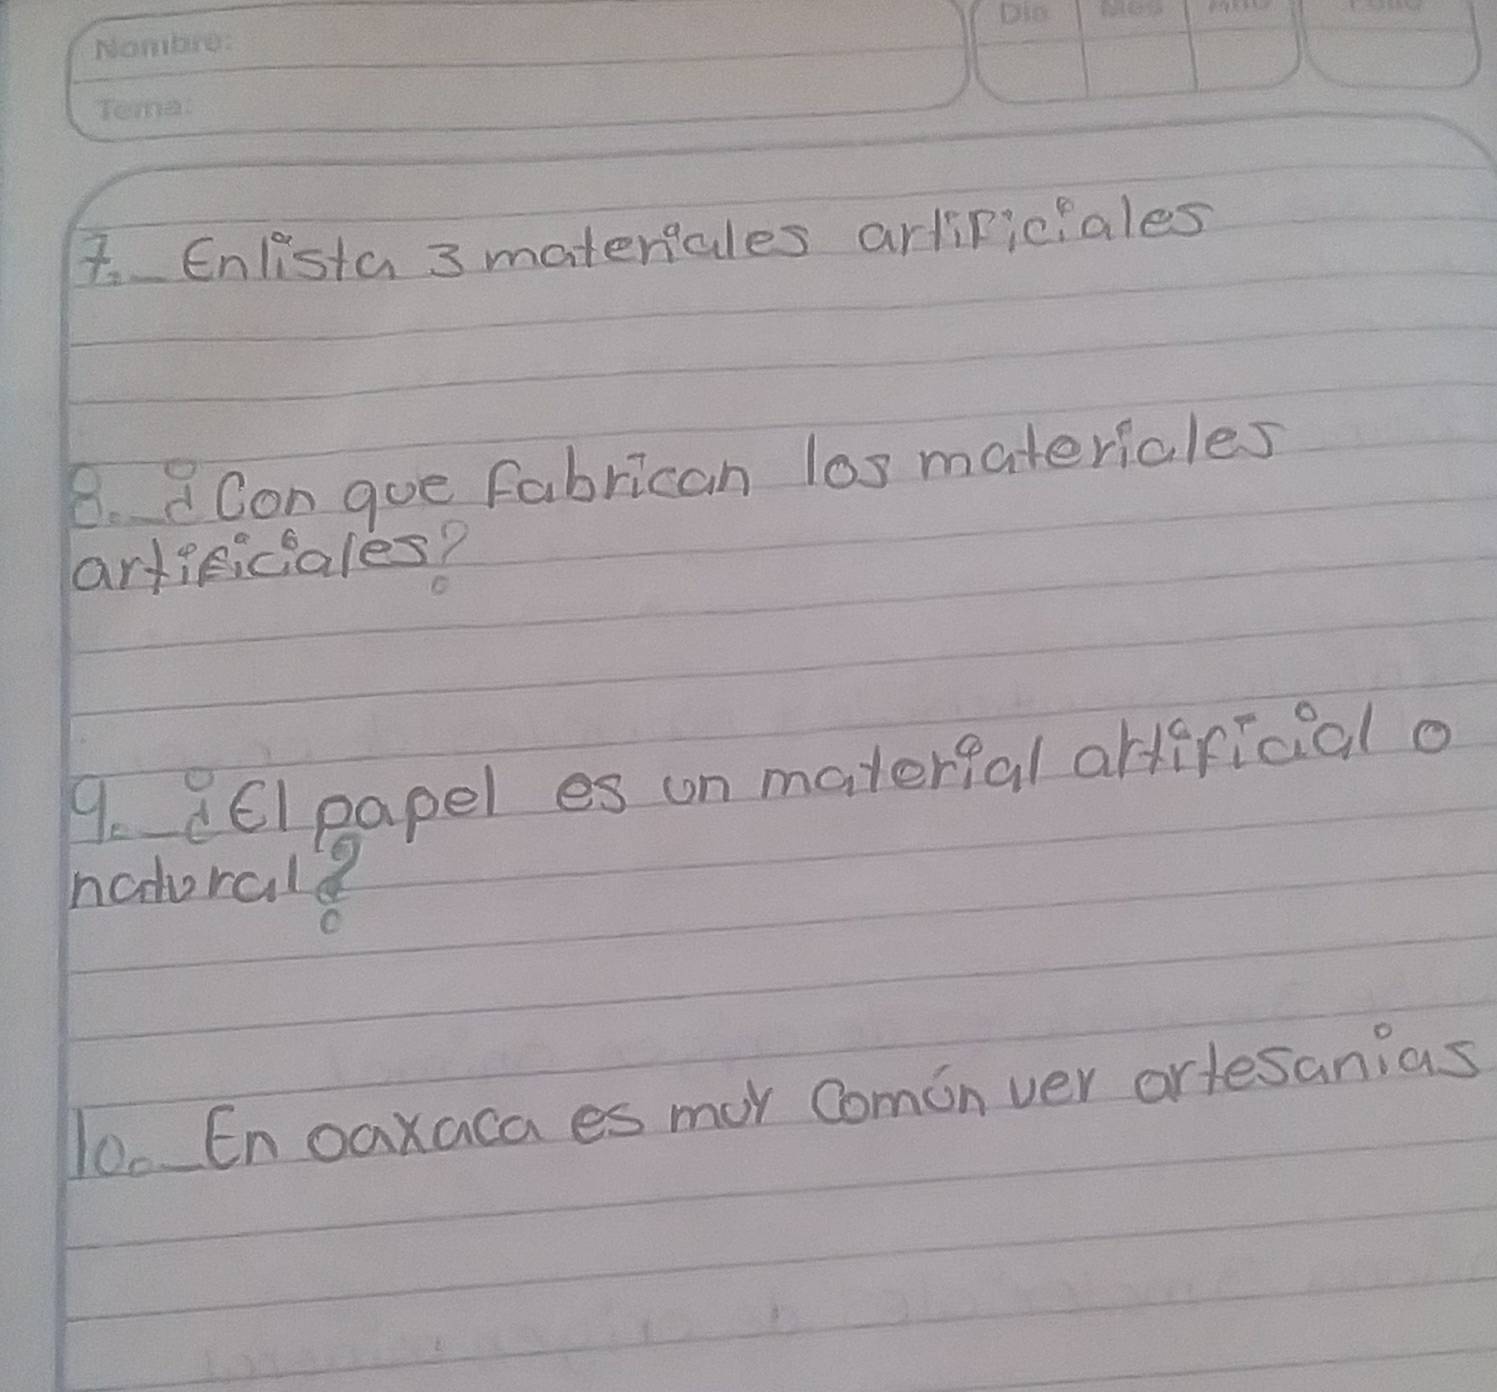 Nombre:
Tema:
Dia Mes Año Folio
7._ Enlista 3 materiales artificiales
8._ ¿Con que fabrican los materiales
artificiales?
9._ ¿El papel es un material artificial o
natural?
10._ En oaxaca es muy Común ver artesanias